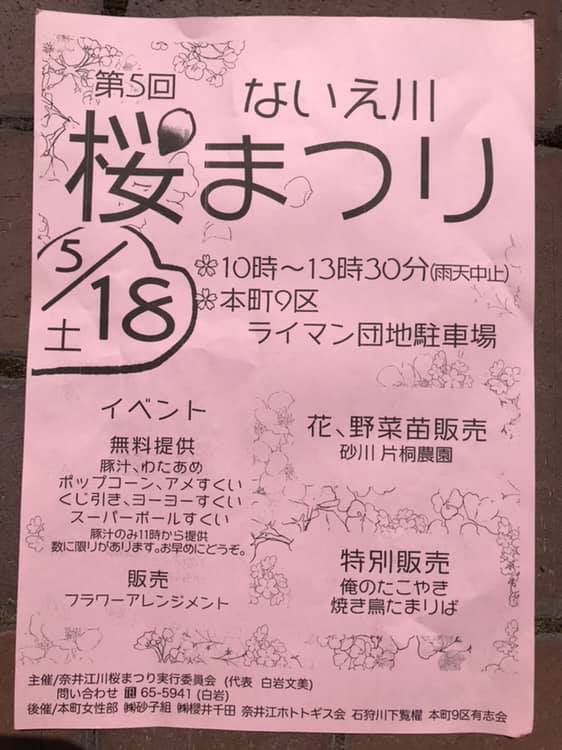 第5回
ないえ川
桜まつり
5/18
土
10時～13時30分(雨天中止)
本町9区
ライマン団地駐車場
イベント
無料提供
豚汁、わたあめ
ポップコーン、アメすくい
くじ引き、ヨーヨーすくい
スーパーボールすくい
豚汁のみ11時から提供
数に限りがあります。お早めにどうぞ。
販売
フラワーアレンジメント
花、野菜苗販売
砂川 片桐農園
特別販売
俺のたこやき
焼き鳥たまりば
主催/奈井江川桜まつり実行委員会 (代表 白岩文美)
問い合わせ ☎ 65-5941 (白岩)
後催/本町女性部 ㈱砂子組 ㈱櫻井千田 奈井江ホトトギス会 石狩川下覧櫂 本町9区有志会